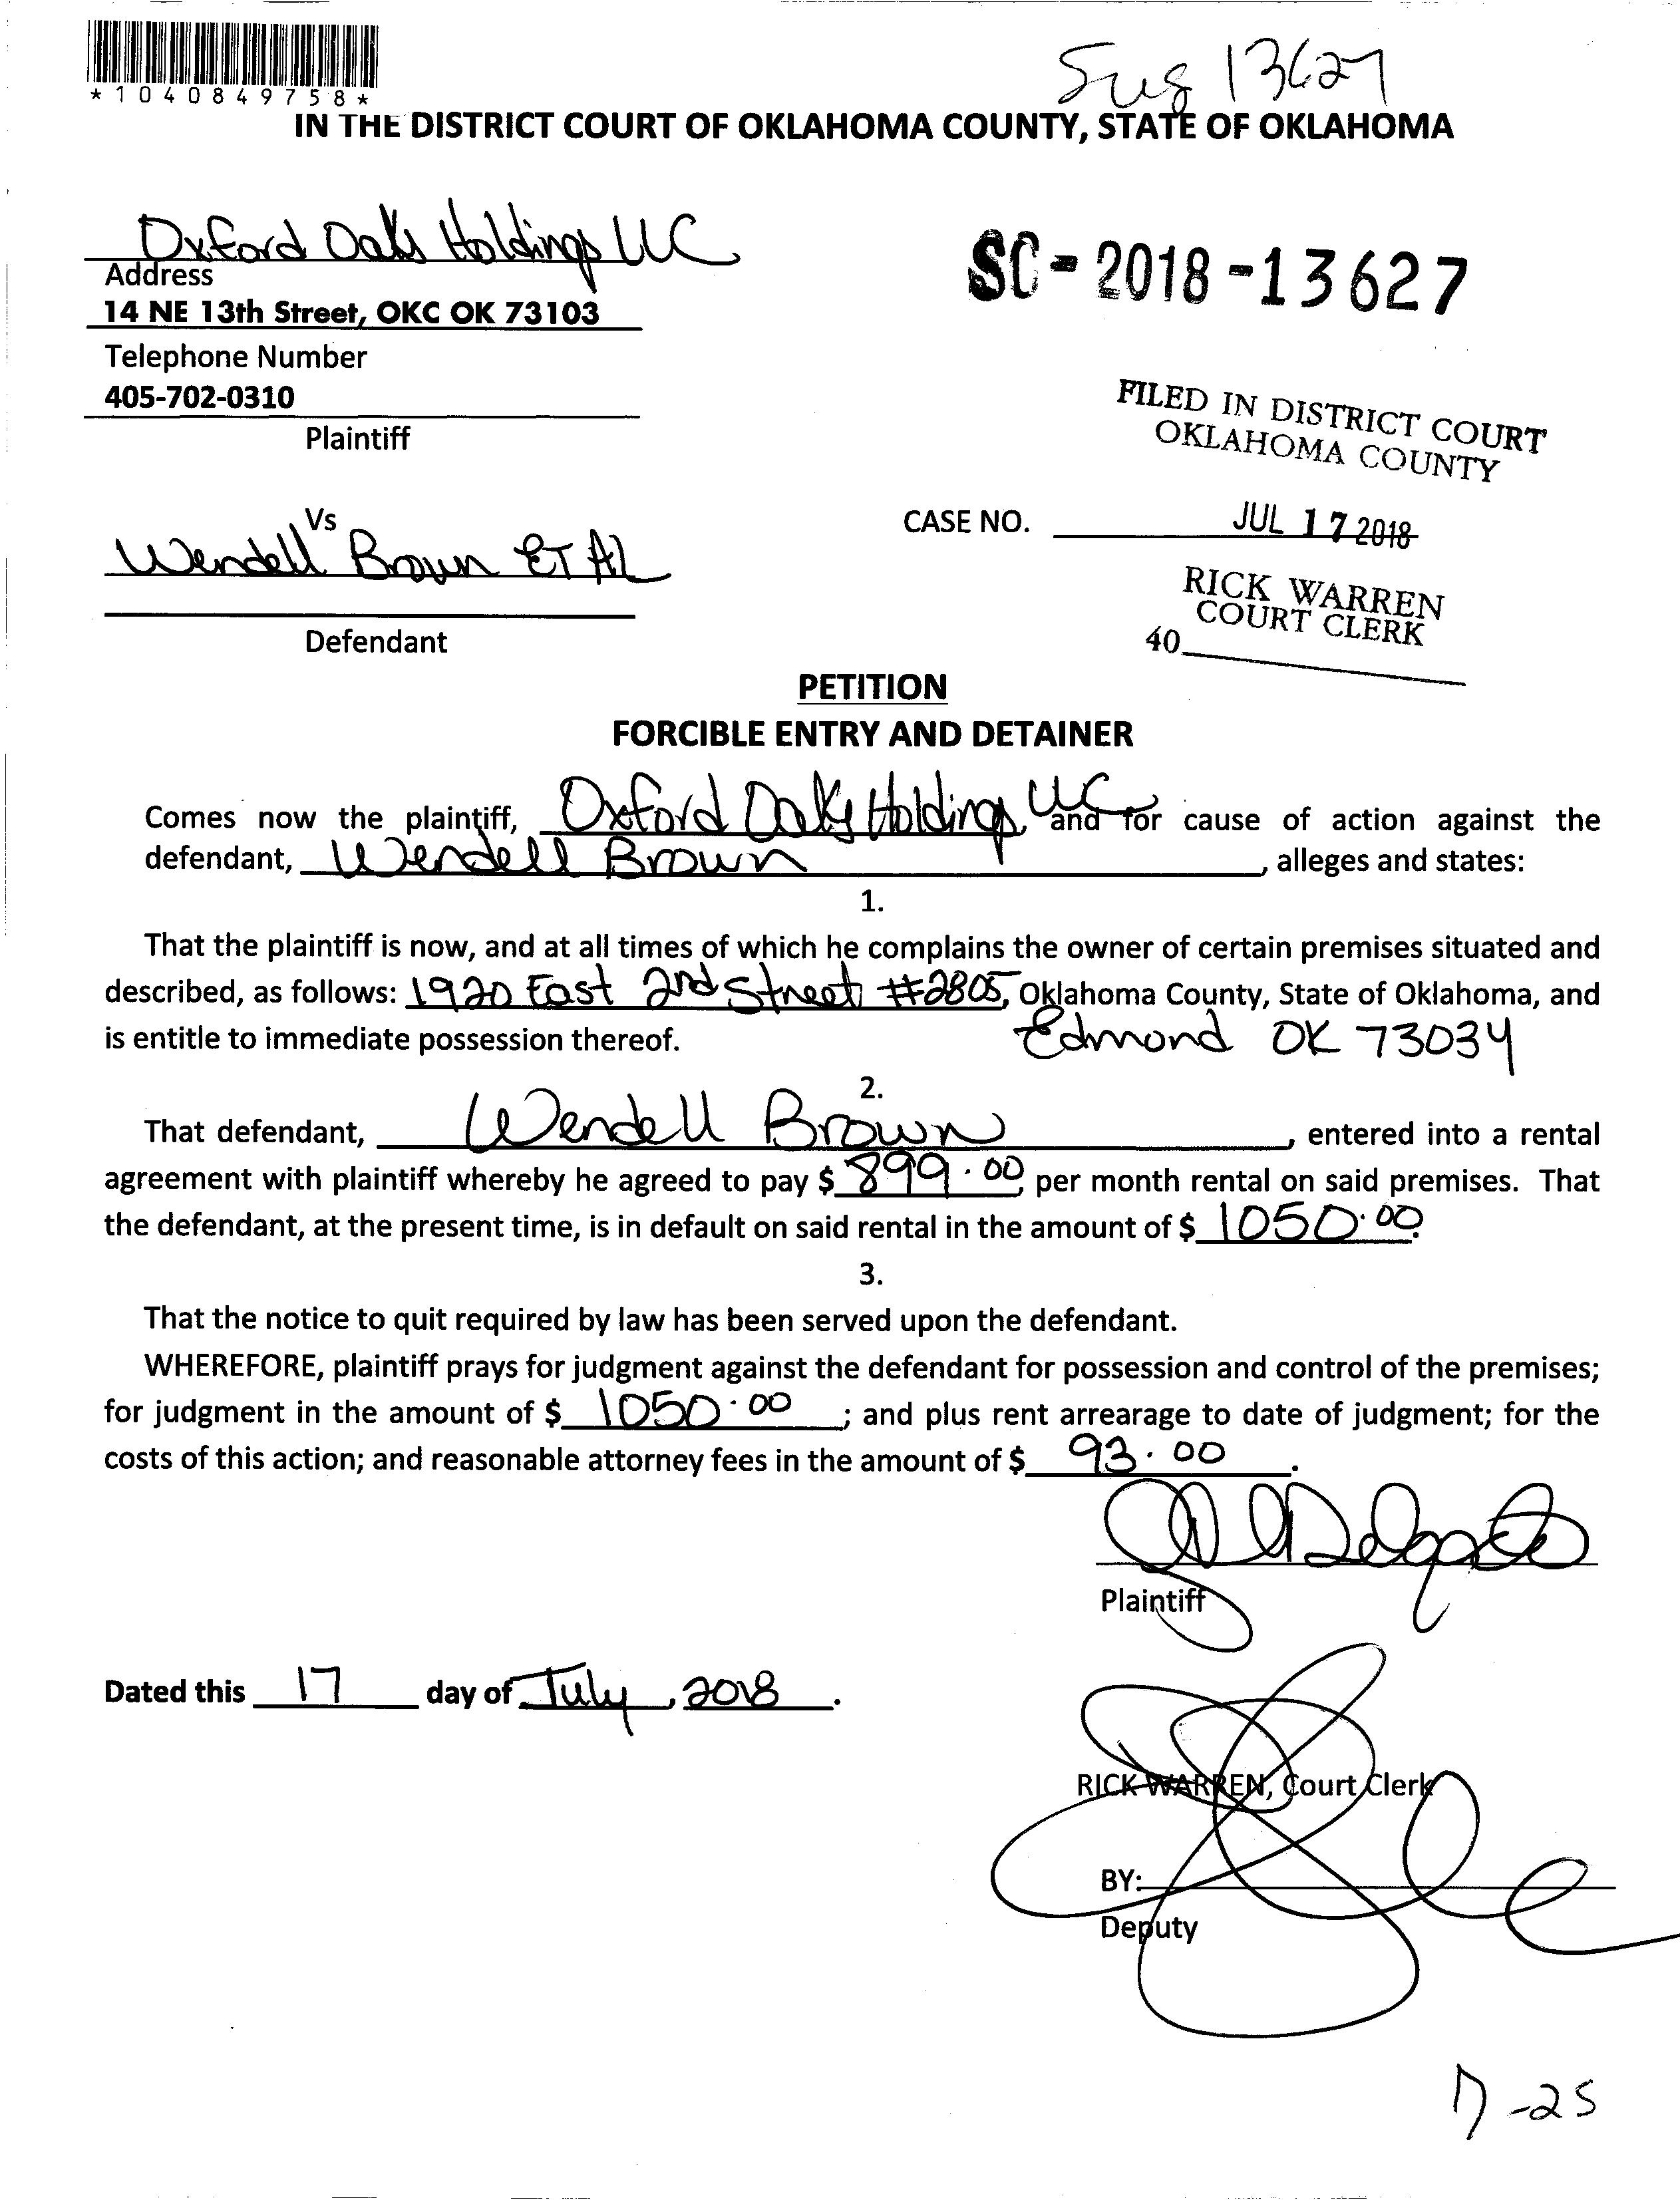 *1040849758*
13627
IN THE DISTRICT COURT OF OKLAHOMA COUNTY, STATE OF OKLAHOMA
Oxford Oaks Holdings LLC
Address
14 NE 13th Street, OKC OK 73103
Telephone Number
405-702-0310
Plaintiff
SC-2018-13627
FILED IN DISTRICT COURT
OKLAHOMA COUNTY
Vs
Wendell Brown ET AL
Defendant
CASE NO.
JUL 17 2018
RICK WARREN
COURT CLERK
40
PETITION
FORCIBLE ENTRY AND DETAINER
Comes now the plaintiff, Oxford Oaks Holdings, LLC and for cause of action against the
defendant, Wendell Brown, alleges and states:
1.
That the plaintiff is now, and at all times of which he complains the owner of certain premises situated and
described, as follows: 1920 East 2nd Street #2805, Oklahoma County, State of Oklahoma, and
is entitle to immediate possession thereof. Edmond OK 73034
2.
That defendant, Wendell Brown, entered into a rental
agreement with plaintiff whereby he agreed to pay $ 899.00, per month rental on said premises. That
the defendant, at the present time, is in default on said rental in the amount of $ 1050.00.
3.
That the notice to quit required by law has been served upon the defendant.
WHEREFORE, plaintiff prays for judgment against the defendant for possession and control of the premises;
for judgment in the amount of $ 1050.00; and plus rent arrearage to date of judgment; for the
costs of this action; and reasonable attorney fees in the amount of $ 93.00.
Plaintiff
Dated this 17 day of July, 2018.
RICK WARREN, Court Clerk
BY:
Deputy
7-25